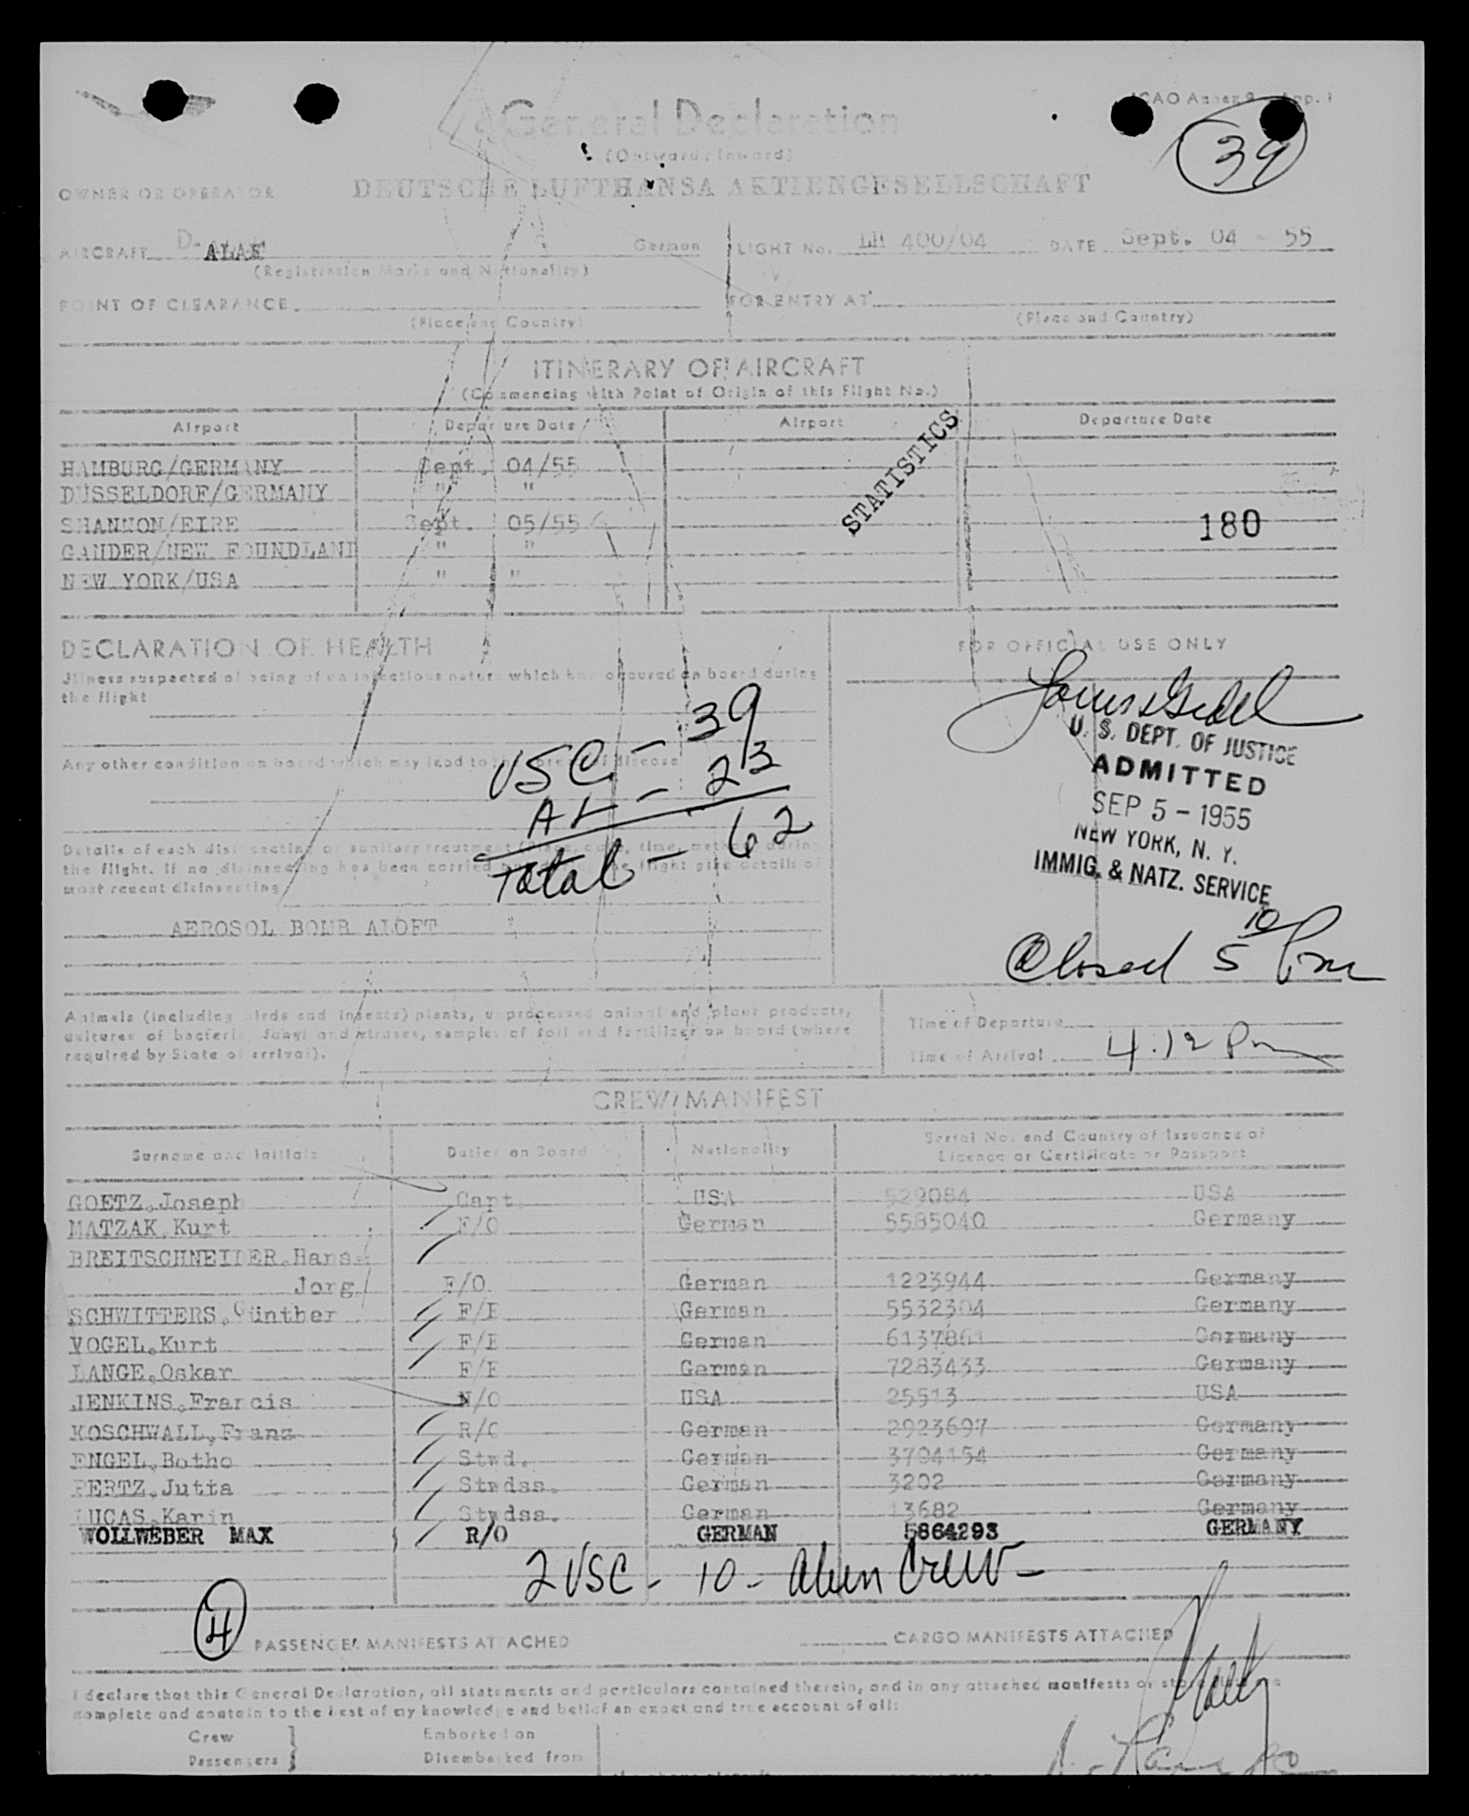 ICAO Annex 9 App. 1
39
General Declaration
(Outward/Inward)
OWNER OR OPERATOR DEUTSCHE LUFTHANSA AKTIENGESELLSCHAFT
AIRCRAFT D- German FLIGHT No. LH 400/04 DATE Sept. 04 - 55
(Registration Marks and Nationality)
POINT OF CLEARANCE FOR ENTRY AT
(Place and Country) (Place and Country)
ITINERARY OF AIRCRAFT
(Commencing with Point of Origin of this Flight No.)
Airport Departure Date Airport Departure Date
STATISTICS
HAMBURG/GERMANY Sept. 04/55
DUSSELDORF/GERMANY " "
SHANNON/EIRE Sept. 05/55 180
GANDER/NEW FOUNDLAND " "
NEW YORK/USA " "
DECLARATION OF HEALTH FOR OFFICIAL USE ONLY
Illness suspected of being of an infectious nature which has occured on board during
the flight
USC - 39
Any other condition on board which may lead to the spread of disease
AL - 23
Total - 62
U. S. DEPT. OF JUSTICE
ADMITTED
SEP 5 - 1955
NEW YORK, N. Y.
IMMIG. & NATZ. SERVICE
Details of each disinsecting or sanitary treatment time, method during
the flight. If no disinsecting has been carried flight give details of
most recent disinsecting
AEROSOL BOMB ALOFT
Closed 5 10 Pm
Animals (including birds and insects) plants, unprocessed animal and plant products,
cultures of bacteria, fungi and viruses, samples of soil and fertilizer on board (where
required by State of arrival).
Time of Departure
Time of Arrival 4.12 Pm
CREW/MANIFEST
Surname and Initials Duties on Board Nationality Serial No. and Country of Issuance of
Licence or Certificate or Passport
GOETZ, Joseph Capt. USA 529084 USA
MATZAK, Kurt F/O German 5585040 Germany
BREITSCHNEIDER, Hans-
Jorg F/O German 1223944 Germany
SCHWITTERS, Günther F/E German 5532304 Germany
VOGEL, Kurt F/E German Germany
LANGE, Oskar F/E German 7283433 Germany
JENKINS, Francis N/O USA 25513 USA
KOSCHWALL, Franz R/O German 2923697 Germany
ENGEL, Botho Stwd. German 3704154 Germany
PERTZ, Jutta Stwdss. German 3202 Germany
LUCAS, Karin Stwdss. German 13682 Germany
WOLLWEBER MAX R/O GERMAN 5864293 GERMANY
2 USC - 10 - alien Crew -
4 PASSENGER MANIFESTS ATTACHED CARGO MANIFESTS ATTACHED
I declare that this General Declaration, all statements and particulars contained therein, and in any attached manifests or
complete and contain to the best of my knowledge and belief an exact and true account of all:
Crew Embarked on
Passengers Disembarked from